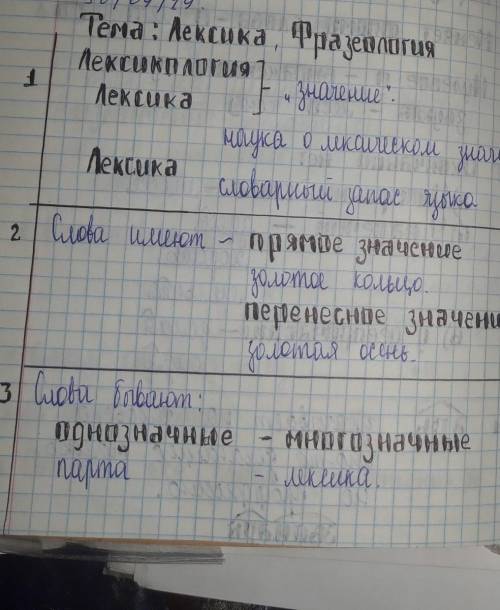 Тема: Лексика, Фразеология
1 Лексикология
Лексика - „значение".
наука о лексическом
Лексика
словарный запас языка
2 Слова имеют - прямое значение
золотое кольцо.
переносное
золотая осень.
3 Слова бывают:
однозначные - многозначные
парта - лексика.